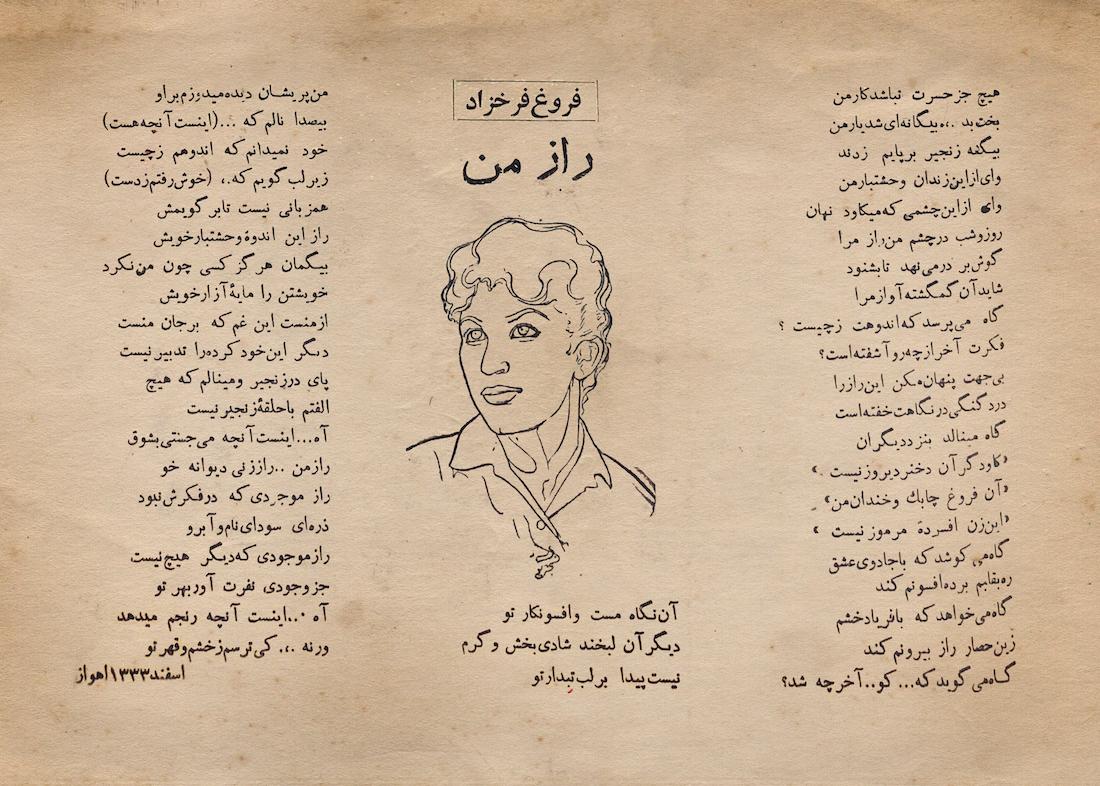 فروغ فرخزاد
راز من
هیچ جز حسرت نباشد کار من
بخت بد .،. بیگانه‌ای شد یار من
بیگنه زنجیر بر پایم زدند
وای از این زندان وحشتبار من
وای از این چشمی که میکاود نهان
روز و شب در چشم من راز مرا
گوش بر در می‌نهد تا بشنود
شاید آن گمگشته آواز مرا
گاه می‌پرسد که اندوهت ز چیست ؟
فکرت آخر از چه رو آشفته است؟
بی‌جهت پنهان مکن این راز را
درد گنگی در نگاهت خفته است
گاه مینالد بنزد دیگران
«کاو دگر آن دختر دیروز نیست .»
«آن فروغ چابك و خندان من»
«این زن افسردهٔ مرموز نیست »
گاه می کوشد که با جادوی عشق
ره بقلبم برده افسونم کند
گاه می‌خواهد که با فریاد خشم
زین حصار راز بیرونم کند
گاه می گوید که... کو.. آخر چه شد؟
آن نگاه مست و افسونکار تو
دیگر آن لبخند شادی بخش و گرم
نیست پیدا بر لب تبدار تو
من پریشان دیده میدوزم بر او
بیصدا نالم که ...(اینست آنچه هست)
خود نمیدانم که اندوهم ز چیست
زیر لب گویم که ., (خوش رفتم ز دست)
همزبانی نیست تا بر گویمش
راز این اندوهٔ وحشتبار خویش
بیگمان هر گز کسی چون من نکرد
خویشتن را مایهٔ آزار خویش
از منست این غم که بر جان منست
دیگر این خود کرده را تدبیر نیست
پای در زنجیر و مینالم که هیچ
الفتم با حلقهٔ زنجیر نیست
آه...اینست آنچه می جستی بشوق
راز من ..راز زنی دیوانه خو
راز موجودی که در فکرش نبود
ذره‌ای سودای نام و آبرو
راز موجودی که دیگر هیچ نیست
جز وجودی نفرت آور بهر تو
آه ...اینست آنچه رنجم میدهد
ورنه .،. کی ترسم ز خشم و قهر تو
اسفند ۱۳۳۳ اهواز